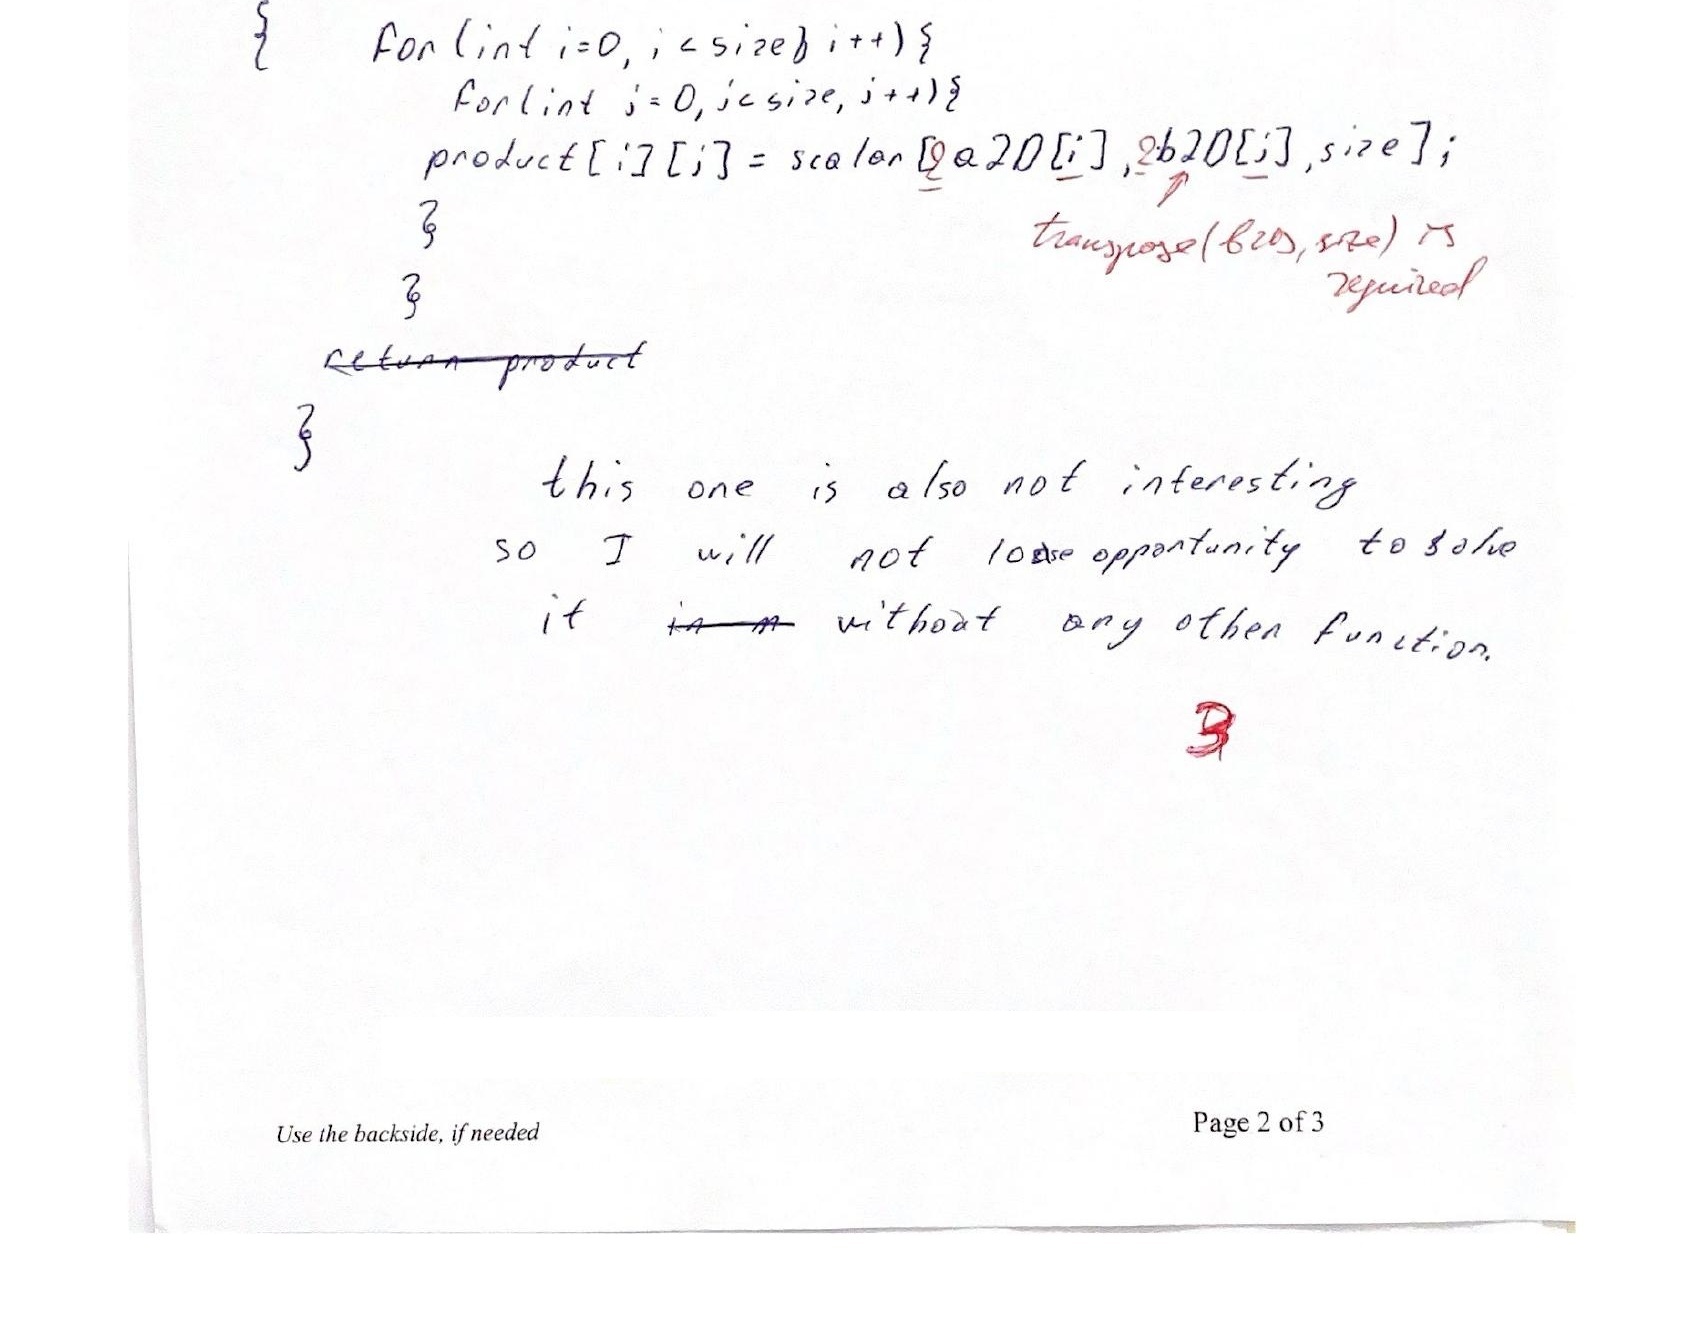 { for (int i=0, i < size; i++) {
for (int j=0, j< size, j++) {
product [i] [j] = scalar [&a2D [i], &b2D[j], size];
}
transpose(b2D, size) is
required
}
return product
}
this one is also not interesting
so I will not loose opportunity to solve
it in m without any other function.
3
Use the backside, if needed
Page 2 of 3